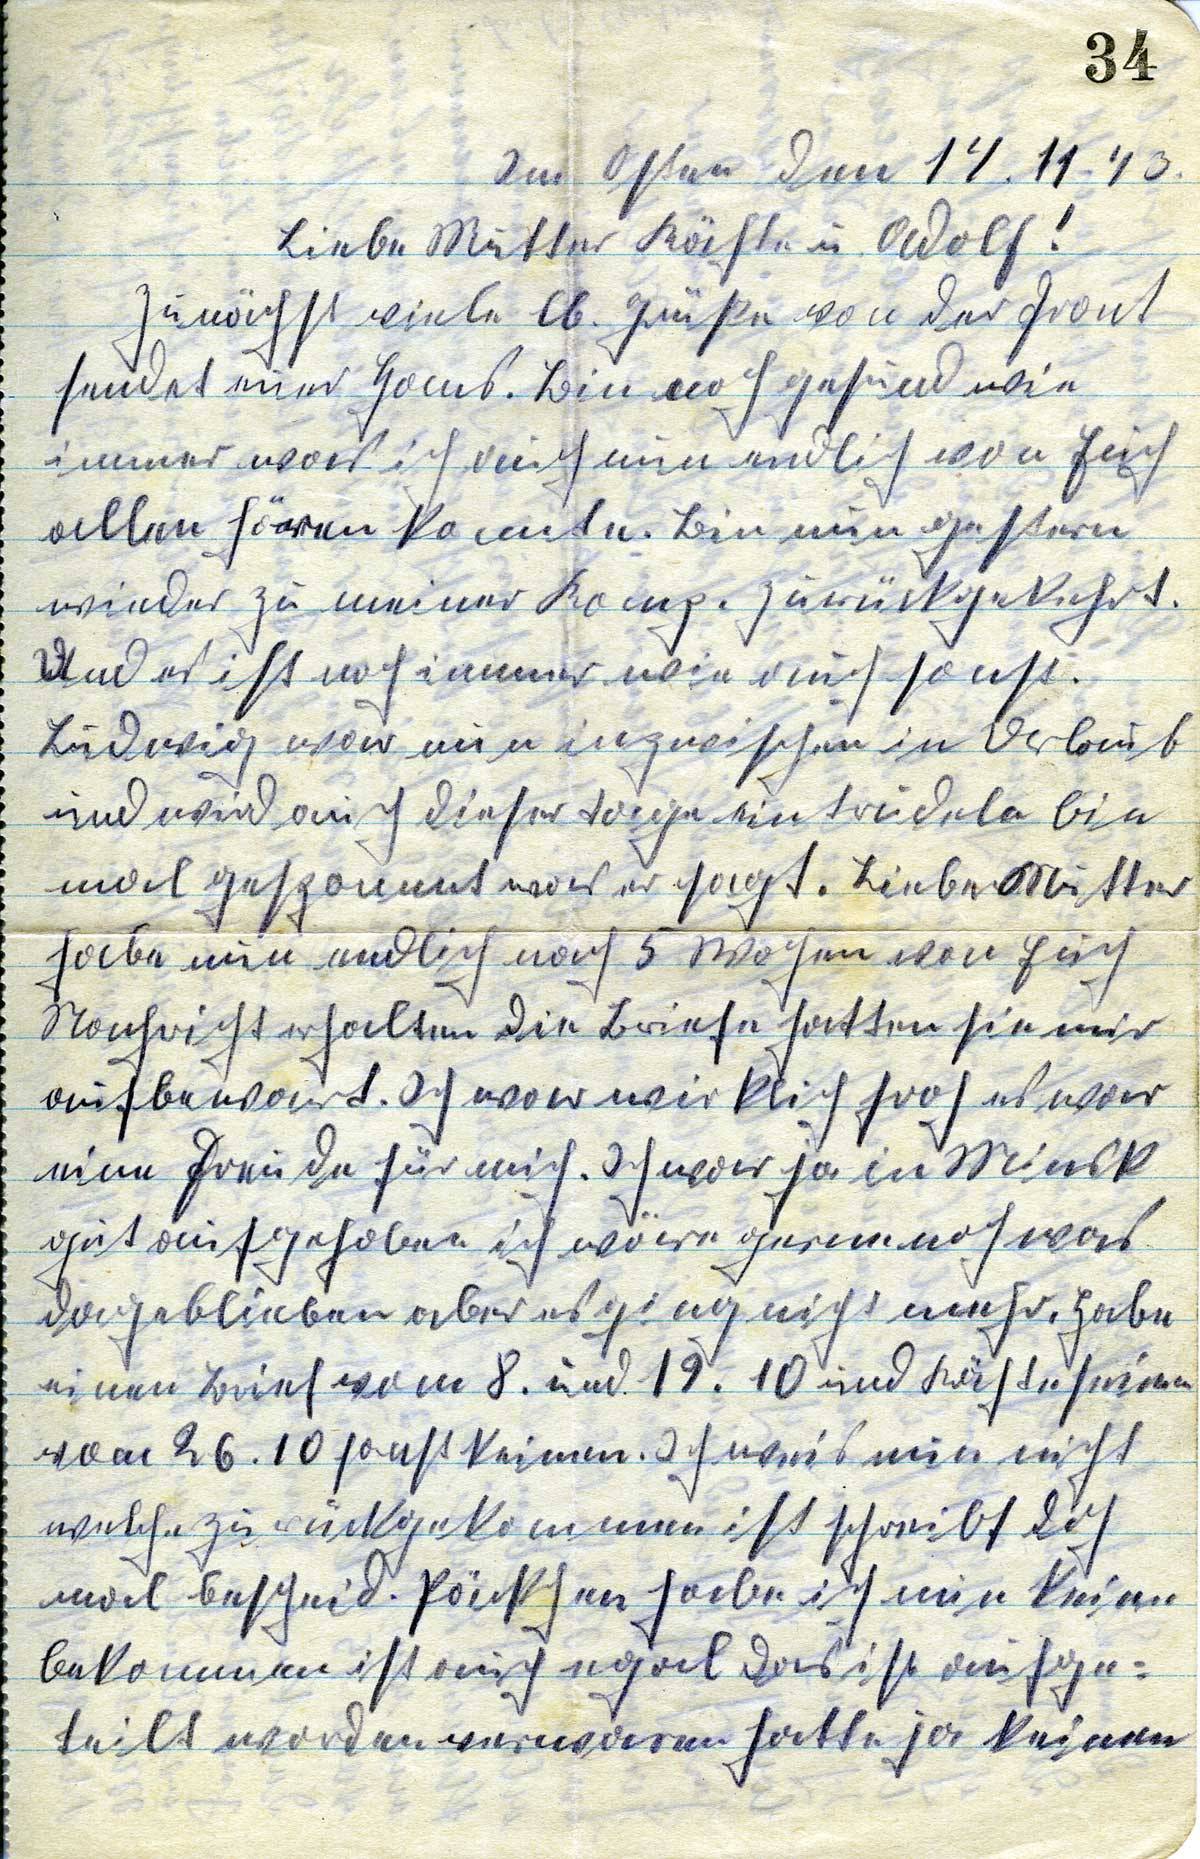 34
Im Osten den 14.11.43.
Liebe Mutter Käthe u. Adolf!
Zunächst viele lb. Grüße von der Front
sendet euer Hans. Bin noch gesund wie
immer was ich auch nun endlich von Euch
allen hören konnte. Bin nun gestern
wieder zu meiner Komp. zurückgekehrt.
Und es ist noch immer wie auch sonst.
Ludwig war nun inzwischen in Urlaub
und wird auch dieser Tage eintrudeln bin
mal gespannt was er sagt. Liebe Mutter
habe nun endlich nach 5 Wochen von Euch
Nachricht erhalten die Briefe hatten sie mir
aufbewart. Ich war wirklich froh es war
eine Freude für mich. Ich war ja in Minsk
gut aufgehoben ich wäre gerne noch was
dageblieben aber es ging nicht mehr. Habe
einen Brief vom 8. und 19. 10 und Käthe seinen
vom 26.10 sonst keinen. Ich weis nun nicht
welche zurückgekommen ist schreibt doch
mal bescheid. Päckchen habe ich nun keine
bekommen ist auch egal das ist aufge=
teilt worden verwaren hatte ja keinen